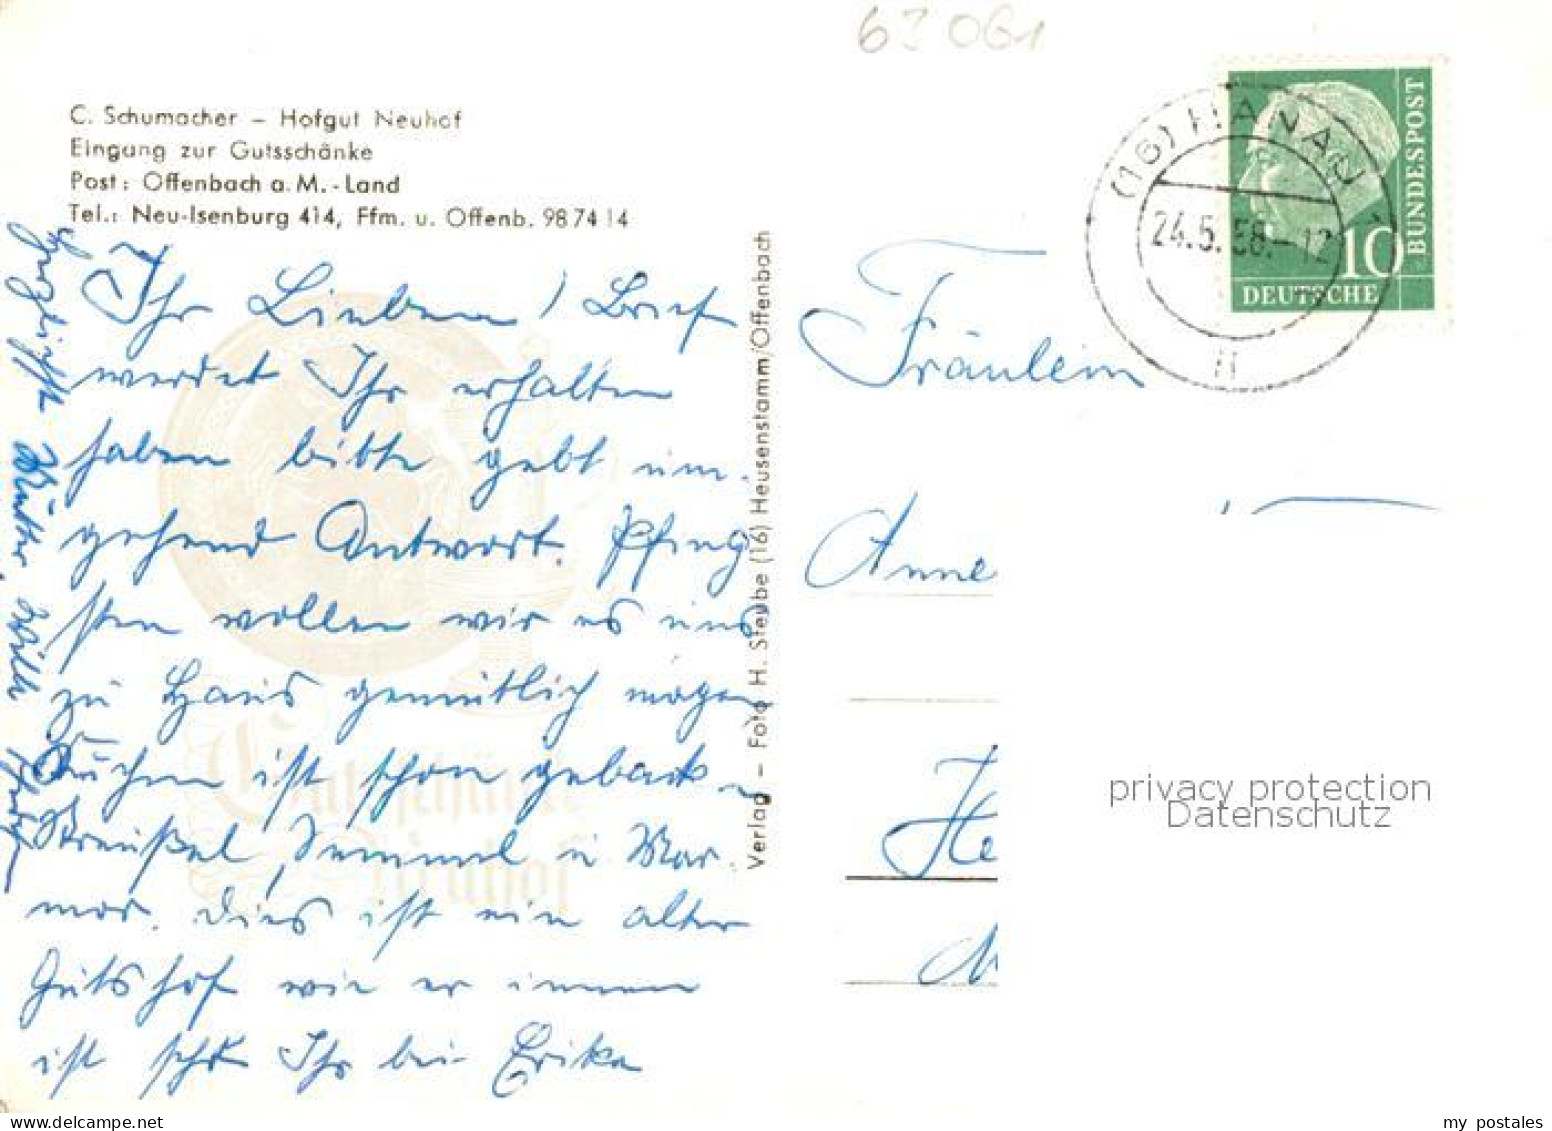 63 061
C. Schumacher – Hofgut Neuhof
Eingang zur Gutsschänke
Post: Offenbach a. M. - Land
Tel.: Neu-Isenburg 414, Ffm. u. Offenb. 98 74 14
Ihr Lieben! Brief
werdet Ihr erhalten
haben bitte gebt um-
gehend Antwort. Pfing
sten wollen wir es uns
zu Haus gemütlich machen
Kuchen ist schon gebacken
Streußel, Semmel u Mar-
mor. Dies ist ein alter
Gutshof wie er innen
ist seht Ihr bei Erika
Herzlichst Mutter,
Verlag – Foto H. Steube (16) Heusenstamm/Offenbach
(16) HANAU
24.5.58.-12
DEUTSCHE
BUNDESPOST
10
Fräulein
Anne
He
privacy protection
Datenschutz
my postales